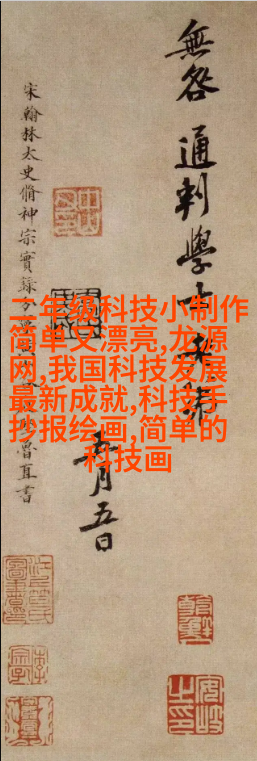 無咎 通判學士
月五日
宋翰林太史脩神宗實錄分寧黃 魯直書
二年级科技小制作
简单又漂亮,龙源
网,我国科技发展
最新成就,科技手
抄报绘画,简单的
科技画